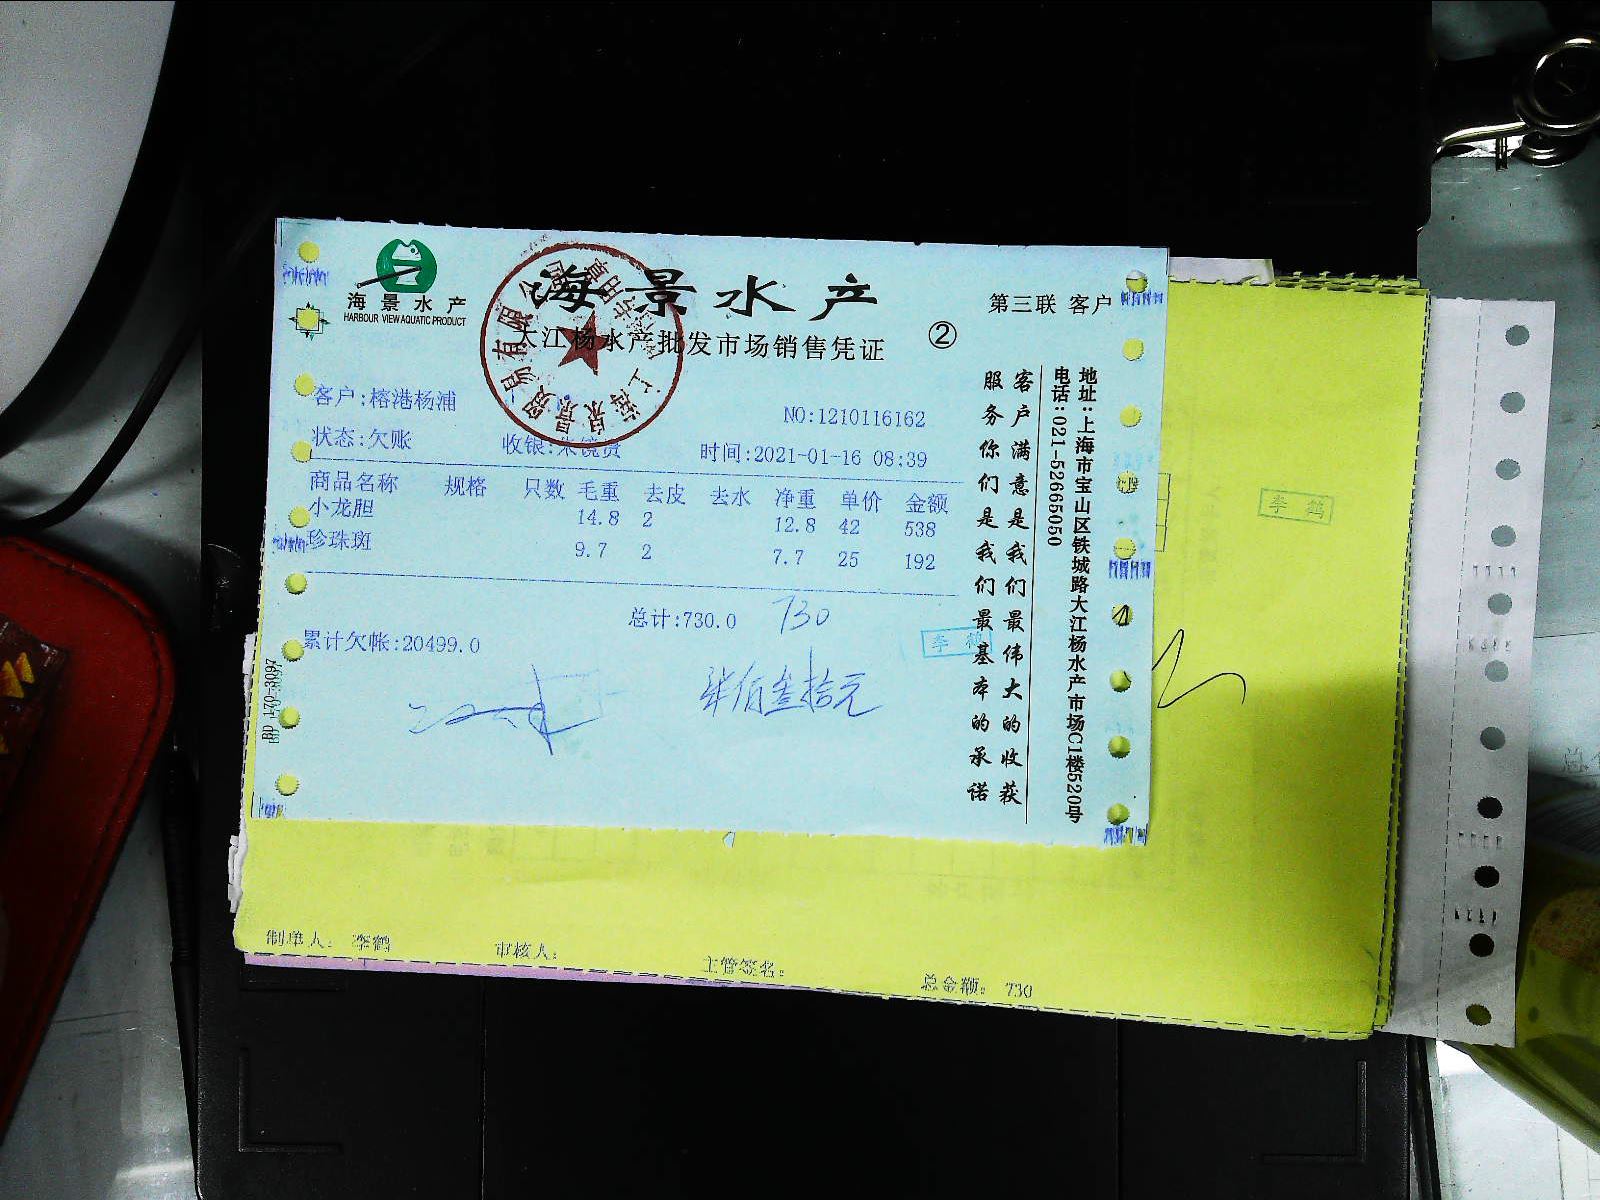 海景水产
HARBOUR VIEW AQUATIC PRODUCT
海景水产
第三联 客户
大江杨水产批发市场销售凭证 ②
客户:榕港杨浦
NO:1210116162
状态:欠账 收银:朱镜贤 时间:2021-01-16 08:39
商品名称 规格 只数 毛重 去皮 去水 净重 单价 金额
小龙胆 14.8 2 12.8 42 538
珍珠斑 9.7 2 7.7 25 192
总计:730.0 730
累计欠帐:20499.0
李鹤
柒佰叁拾元
客户满意是我们最伟大的收获
服务你们是我们最基本的承诺
地址:上海市宝山区铁城路大江杨水产市场C1楼520号
电话:021-52665050
BD 170-3097
李鹤
制单人: 李鹤 审核人: 主管签名: 总金额: 730